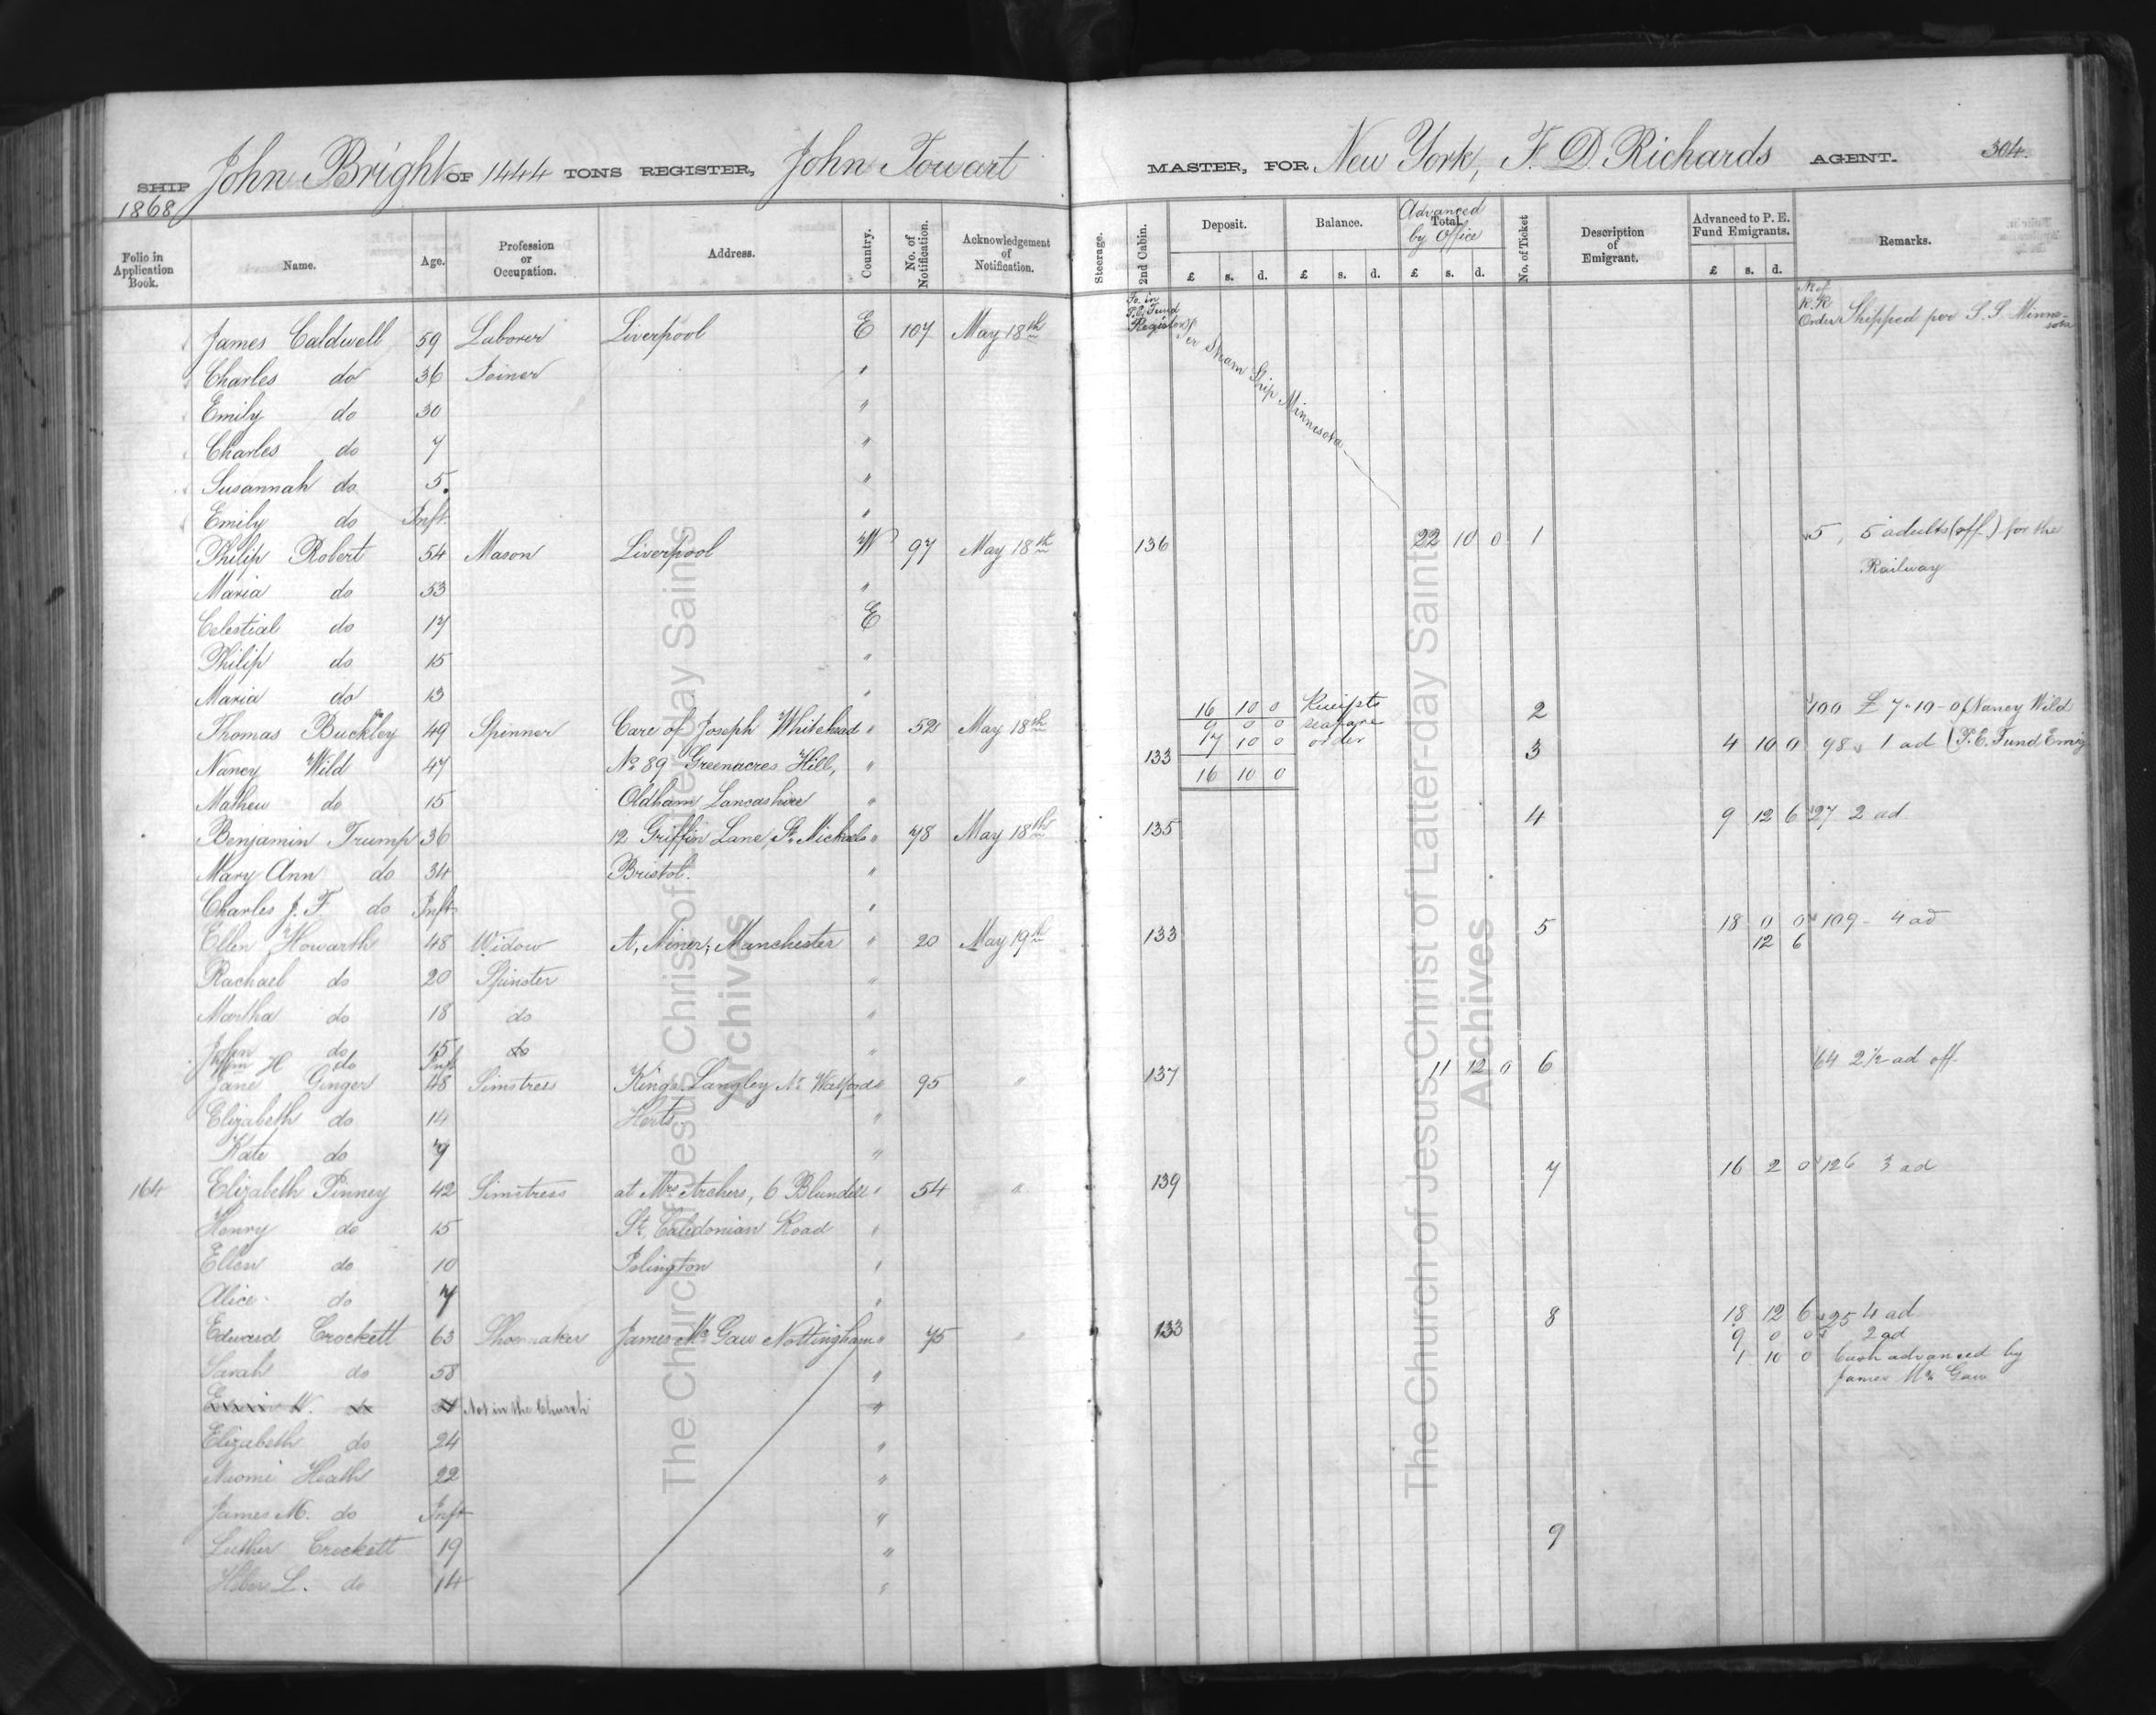 SHIP John Bright OF 1444 TONS REGISTER, John Towart MASTER, FOR New York, F. D. Richards AGENT. 304.
1868
Folio in Application Book. Name. Age. Profession or Occupation. Address. Country. No. of Notification. Acknowledgement of Notification. Steerage. 2nd Cabin. Deposit. Balance. Advanced Total by Office No. of Ticket Description of Emigrant. Advanced to P. E. Fund Emigrants. Remarks.
£ s. d. £ s. d. £ s. d. £ s. d.
Fo. in P.E. Fund Register No of R.R Order
James Caldwell 59 Laborer Liverpool E 107 May 18th Per Steam Ship Minnesota Shipped per S.S. Minnesota
Charles do 36 Joiner "
Emily do 30 "
Charles do 7 "
Susannah do 5. "
Emily do Inft "
Philip Robert 54 Mason Liverpool W 97 May 18th 136 22 10 0 1 5, 5 adults (off.) for the Railway
Maria do 53 "
Celestial do 17 E
Philip do 15 "
Maria do 13 "
Thomas Buckley 49 Spinner Care of Joseph Whitehead " 52 May 18th 16 10 0 2 100 £7-10-0 Nancy Wild
9 0 0
Nancy Wild 47 No. 89 Greenacres Hill, " 133 17 10 0 order 3 4 10 0 98 1 ad (P.E. Fund Emig
16 10 0
Mathew do 15 Oldham Lancashire "
Benjamin Trump 36 12 Griffin Lane, St. Michaels " 78 May 18th 135 4 9 12 6 27 2 ad.
Mary Ann do 34 Bristol. "
Charles J. F. do Inft "
Ellen Howarth 48 Widow A, Miner, Manchester " 20 May 19th 133 5 18 0 0 109 - 4 ad
12 6
Rachael do 20 Spinster "
Martha do 18 do "
John do 15 do "
Wm H do Inft
Jane Ginger 48 Simstress Kings Langley Nr Watford " 95 " 137 11 12 0 6 64 2½ ad off.
Elizabeth do 14 Herts "
Kate do 9 "
164 Elizabeth Pinney 42 Simstress at Mrs Archers, 6 Blundell " 54 " 139 7 16 2 0 126 3 ad
Henry do 15 St, Caledonian Road "
Ellen do 10 Islington "
Alice do 7 "
Edward Crockett 63 Shoemaker James Mc Gaw Nottingham " 75 " 133 8 18 12 6 25 4 ad
9 0 0 2 ad
Sarah do 58 " 1 10 0 Cash advanced by James Mc Gaw
W. do Not in the Church "
Elizabeth do 24 "
Naomi Heath 22 "
James M. do Inft "
Luther Crockett 19 " 9
Heber L. do 14 "
The Church of Jesus Christ of Latter-day Saints
Archives
The Church of Jesus Christ of Latter-day Saints
Archives